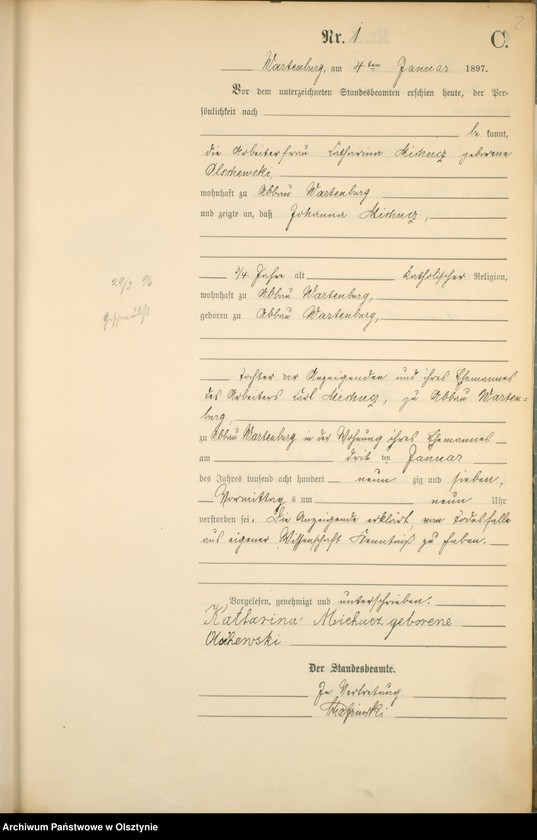 2
Nr. 1 C.
Wartenburg, am 4ten Januar 1897.
Vor dem unterzeichneten Standesbeamten erschien heute, der Per-
sönlichkeit nach
be kannt,
die Arbeiterfrau Catharina Michucz geborene
Olschewski,
wohnhaft zu Abbau Wartenburg
und zeigte an, daß Johanna Michucz,
3/4 Jahre alt katholischer Religion,
wohnhaft zu Abbau Wartenburg,
geboren zu Abbau Wartenburg,
29/2 96
Tochter der Anzeigenden und ihres Ehemannes
des Arbeiters Carl Michucz, zu Abbau Warten-
burg
zu Abbau Wartenburg in der Wohnung ihres Ehemannes
am drit ten Januar
des Jahres tausend acht hundert neun zig und sieben,
Vormittag s um neun Uhr
verstorben sei. Die Anzeigende erklärt, vom Todesfalle
aus eigener Wissenschaft Kenntniß zu haben.
Vorgelesen, genehmigt und unterschrieben.
Katharina Michucz geborene
Olschewski
Der Standesbeamte.
In Vertretung
Archiwum Państwowe w Olsztynie